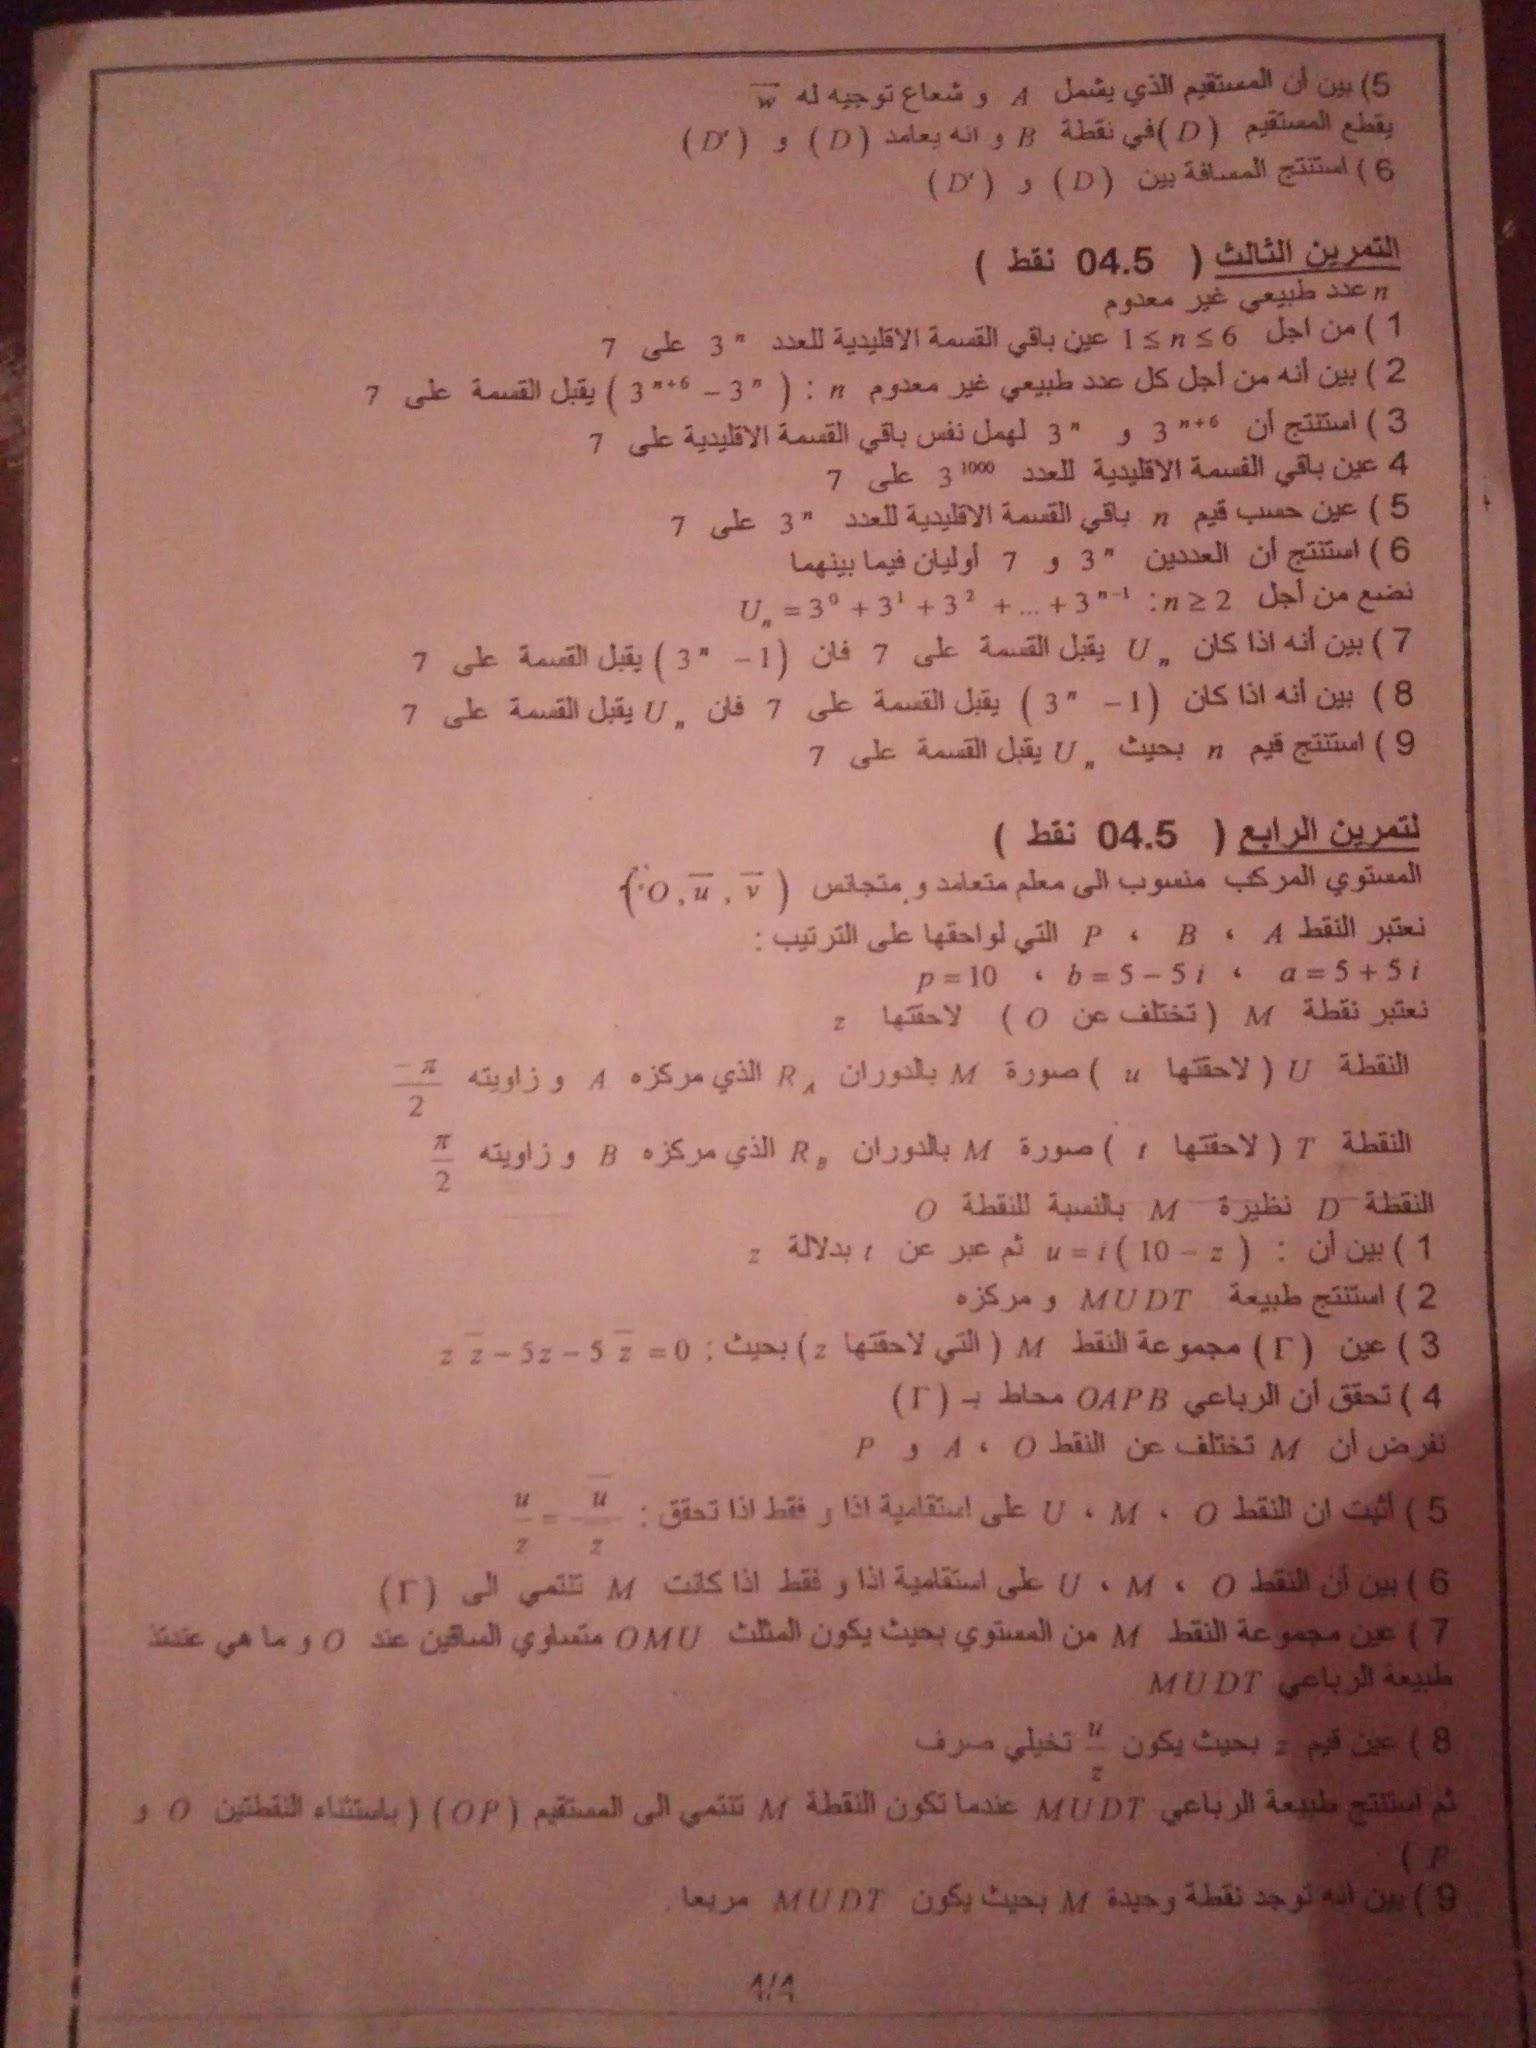 5) بين أن المستقيم الذي يشمل A و شعاع توجيه له w
يقطع المستقيم (D) في نقطة B و انه يعامد (D) و (D')
6) استنتج المسافة بين (D) و (D')
التمرين الثالث ( 04.5 نقط )
n عدد طبيعي غير معدوم
1) من اجل 1 ≤ n ≤ 6 عين باقي القسمة الاقليدية للعدد 3^n على 7
2) بين أنه من أجل كل عدد طبيعي غير معدوم n : (3^{n+6} – 3^n) يقبل القسمة على 7
3) استنتج أن 3^{n+6} و 3^n لهمل نفس باقي القسمة الاقليدية على 7
4 عين باقي القسمة الاقليدية للعدد 3^{1000} على 7
5) عين حسب قيم n باقي القسمة الاقليدية للعدد 3^n على 7
6) استنتج أن العددين 3^n و 7 أوليان فيما بينهما
نضع من أجل n ≥ 2 : U_n = 3^0 + 3^1 + 3^2 + ... + 3^{n-1}
7) بين أنه اذا كان U_n يقبل القسمة على 7 فان (3^n – 1) يقبل القسمة على 7
8) بين أنه اذا كان (3^n – 1) يقبل القسمة على 7 فان U_n يقبل القسمة على 7
9) استنتج قيم n بحيث U_n يقبل القسمة على 7
لتمرين الرابع ( 04.5 نقط )
المستوي المركب منسوب الى معلم متعامد و متجانس (O, u, v)
نعتبر النقط A ، B ، P التي لواحقها على الترتيب :
a = 5 + 5i ، b = 5 – 5i ، p = 10
نعتبر نقطة M ( تختلف عن O ) لاحقتها z
النقطة U ( لاحقتها u ) صورة M بالدوران R_A الذي مركزه A و زاويته -π/2
النقطة T ( لاحقتها t ) صورة M بالدوران R_B الذي مركزه B و زاويته π/2
النقطة D نظيرة M بالنسبة للنقطة O
1) بين أن : u = i(10 – z) ثم عبر عن t بدلالة z
2) استنتج طبيعة MUDT و مركزه
3) عين (Γ) مجموعة النقط M ( التي لاحقتها z ) بحيث : z z̄ – 5z – 5 z̄ = 0
4) تحقق أن الرباعي OAPB محاط بـ (Γ)
نفرض أن M تختلف عن النقط O ، A و P
5) أثبت ان النقط O ، M ، U على استقامية اذا و فقط اذا تحقق : u/z = ū/z
6) بين أن النقط O ، M ، U على استقامية اذا و فقط اذا كانت M تنتمي الى (Γ)
7) عين مجموعة النقط M من المستوي بحيث يكون المثلث OMU متساوي الساقين عند O و ما هي عندئذ
طبيعة الرباعي MUDT
8) عين قيم z بحيث يكون u/z تخيلي صرف
ثم استنتج طبيعة الرباعي MUDT عندما تكون النقطة M تنتمي الى المستقيم (OP) ( باستثناء النقطتين O و
P )
9) بين انه توجد نقطة وحيدة M بحيث يكون MUDT مربعا.
4/4